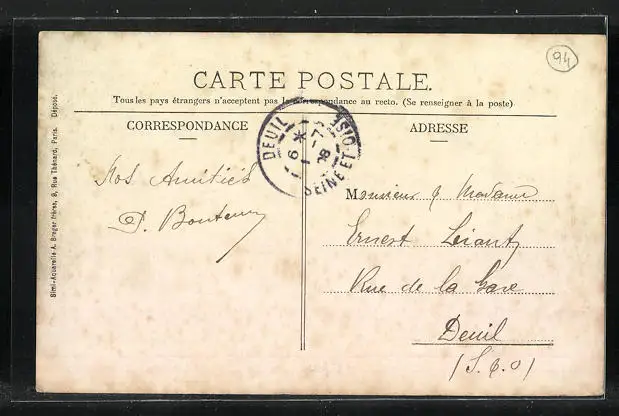 94
CARTE POSTALE.
Tous les pays étrangers n'acceptent pas la correspondance au recto. (Se renseigner à la poste)
CORRESPONDANCE
ADRESSE
DEUIL
SEINE ET OISE
6 * 1 -7 08
Nos Amitiés
Monsieur & Madame
Ernest
Rue de la Gare
Deuil
(S. & O)
Simi-Aquarelle A. Breger frères, 9, Rue Thénard, Paris. Déposé.